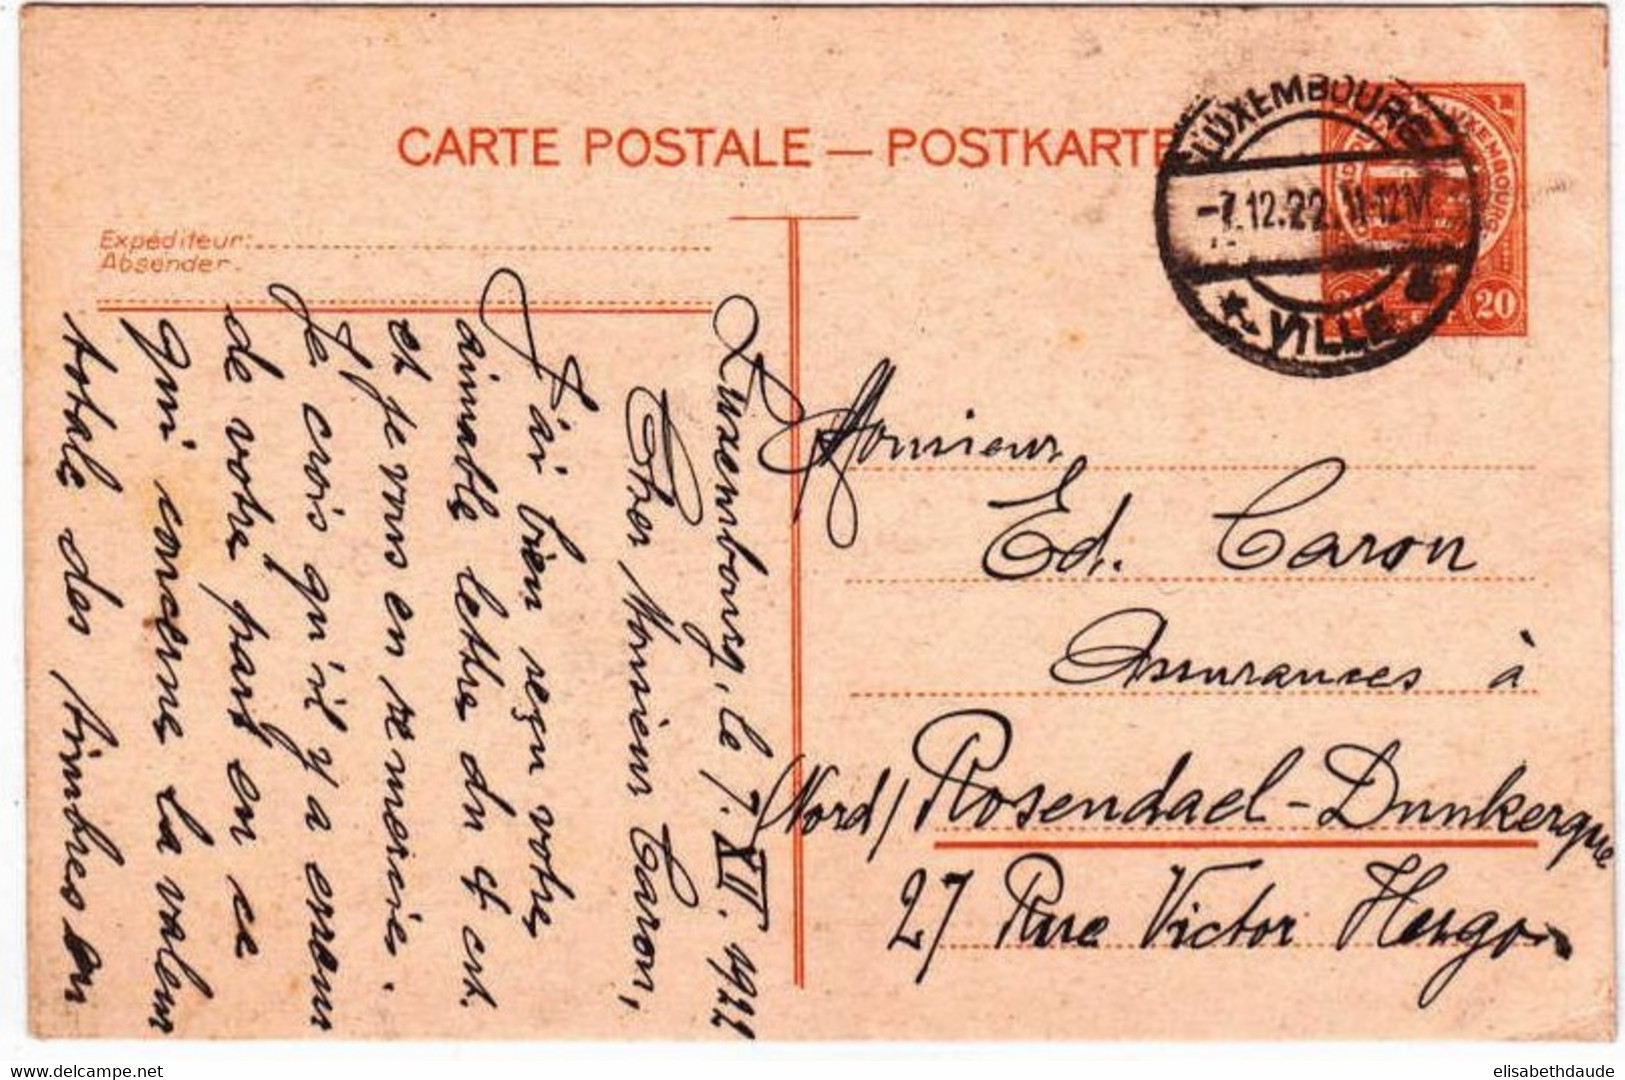 CARTE POSTALE — POSTKARTE
LUXEMBOURG
-7.12.22. 11-12 M
VILLE
LUXEMBOURG
20
Expéditeur:
Absender.
Luxembourg, le 7. XII. 1922
Cher Monsieur Caron,
J'ai bien reçu votre
aimable lettre du 4 crt.
et je vous en remercie.
Je crois qu'il y a erreur
de votre part en ce
qui concerne la valeur
totale des timbres en
Monsieur
Ed. Caron
Assurances à
(Nord) Rosendael-Dunkerque
27 Rue Victor Hugo
elisabethdaude